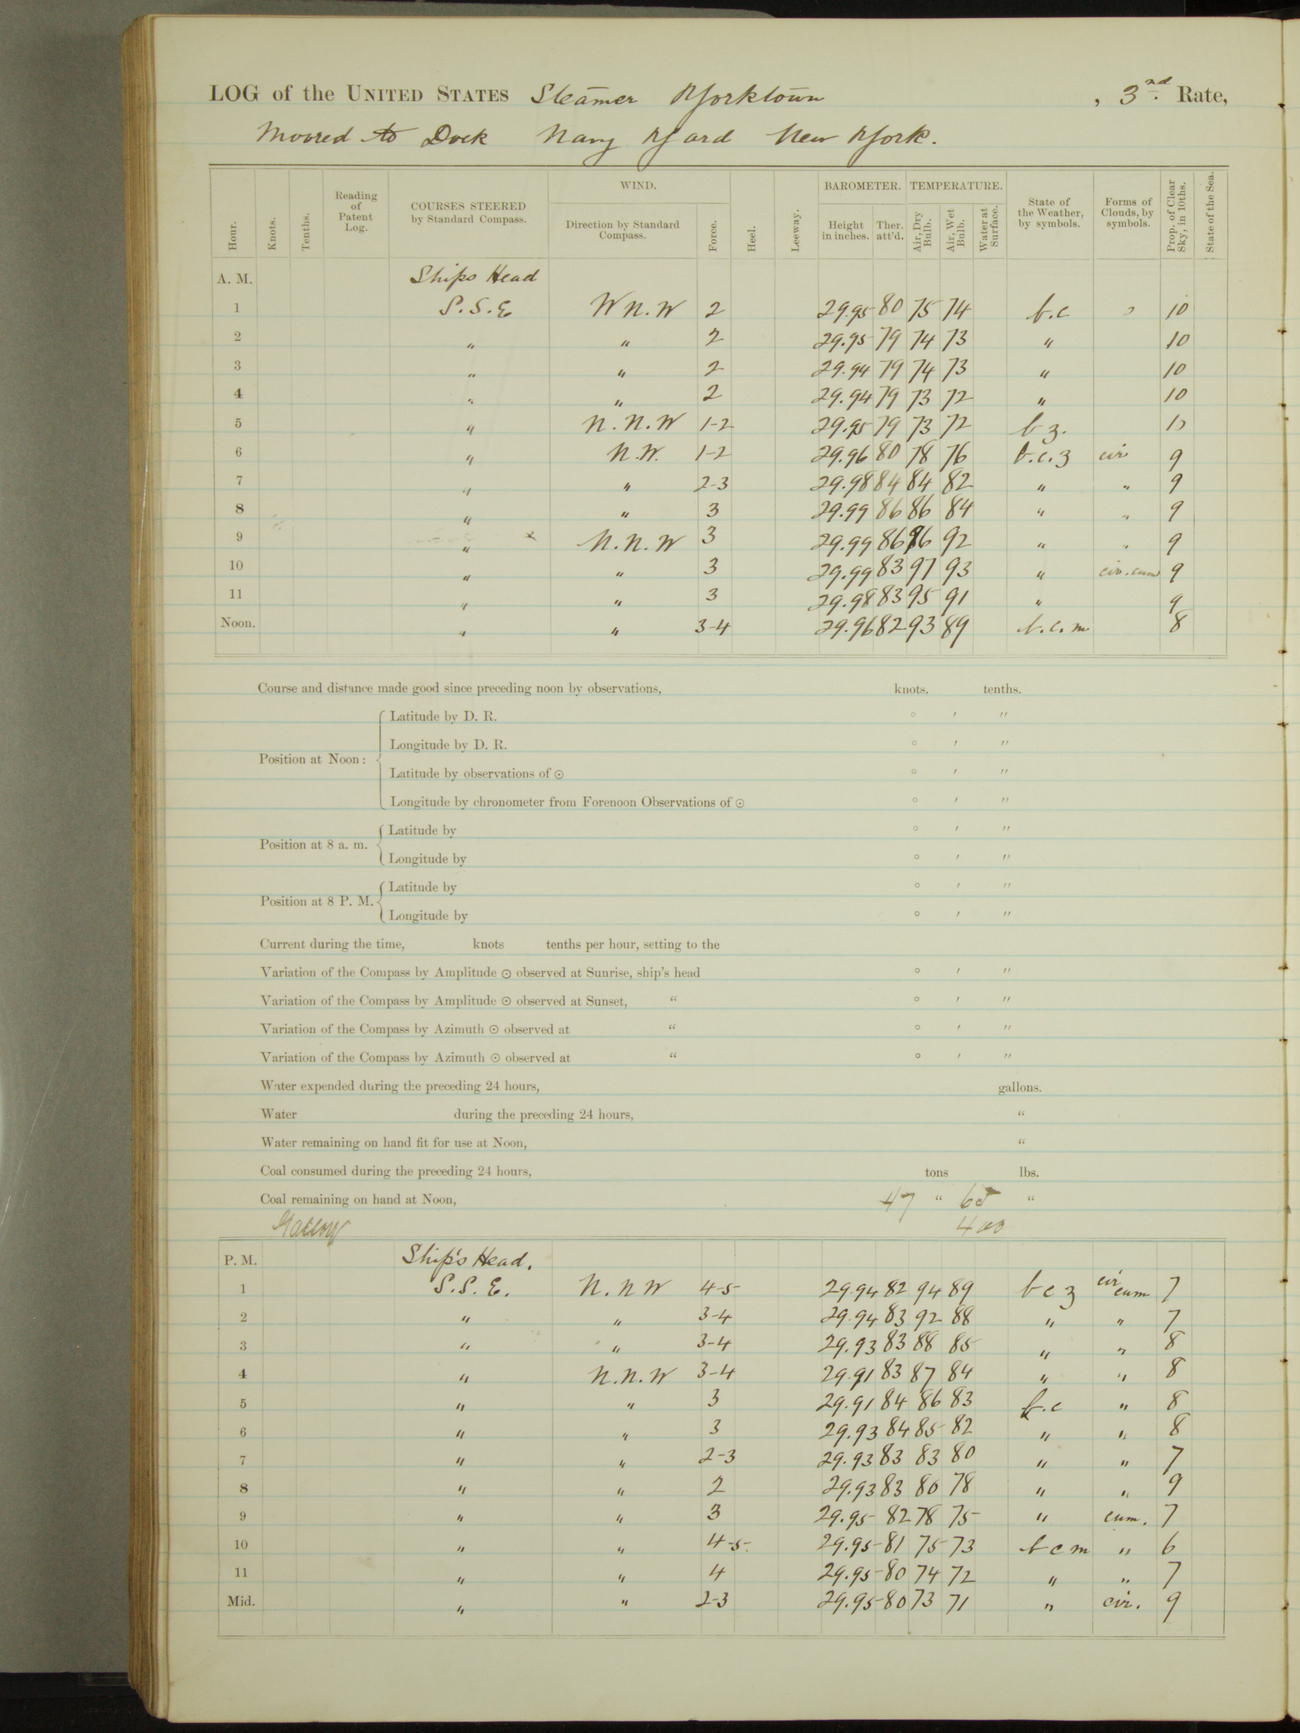 LOG of the UNITED STATES Steamer Yorktown , 3nd Rate,
Moored to Dock Navy Yard New York.
Hour. Knots. Tenths. Reading of Patent Log. COURSES STEERED by Standard Compass. WIND. Direction by Standard Compass. Force. Heel. Leeway. BAROMETER. Height in inches. Ther. att'd. TEMPERATURE. Air, Dry Bulb. Air, Wet Bulb. Water at Surface. State of the Weather, by symbols. Forms of Clouds, by symbols. Prop. of Clear Sky, in 10ths. State of the Sea.
A. M. Ships Head
1 S.S.E W N.W 2 29.95 80 75 74 b.c " 10
2 " " 2 29.95 79 74 73 " 10
3 " " 2 29.94 79 74 73 " 10
4 " " 2 29.94 79 73 72 " 10
5 " N.N.W 1-2 29.95 79 73 72 b z. 10
6 " N.W. 1-2 29.96 80 78 76 b.c.z cir 9
7 " " 2-3 29.98 84 84 82 " " 9
8 " " 3 29.99 86 86 84 " " 9
9 " N.N.W 3 29.99 86 96 92 " " 9
10 " " 3 29.99 83 97 93 " cir.cum 9
11 " " 3 29.98 83 95 91 " 9
Noon. " " 3-4 29.96 82 93 89 b.c.m 8
Course and distance made good since preceding noon by observations, knots. tenths.
Position at Noon: Latitude by D. R. ° ′ ″
Longitude by D. R. ° ′ ″
Latitude by observations of ☉ ° ′ ″
Longitude by chronometer from Forenoon Observations of ☉ ° ′ ″
Position at 8 a. m. Latitude by ° ′ ″
Longitude by ° ′ ″
Position at 8 P. M. Latitude by ° ′ ″
Longitude by ° ′ ″
Current during the time, knots tenths per hour, setting to the
Variation of the Compass by Amplitude ☉ observed at Sunrise, ship's head ° ′ ″
Variation of the Compass by Amplitude ☉ observed at Sunset, " ° ′ ″
Variation of the Compass by Azimuth ☉ observed at " ° ′ ″
Variation of the Compass by Azimuth ☉ observed at " ° ′ ″
Water expended during the preceding 24 hours, gallons.
Water during the preceding 24 hours, "
Water remaining on hand fit for use at Noon, "
Coal consumed during the preceding 24 hours, tons lbs.
Coal remaining on hand at Noon, 47 " "
400
P. M. Ship's Head.
1 S.S.E. N.N W 4-5 29.94 82 94 89 b c z cir cum 7
2 " " 3-4 29.94 83 92 88 " " 7
3 " " 3-4 29.93 83 88 85 " " 8
4 " N.N.W 3-4 29.91 83 87 84 " " 8
5 " " 3 29.91 84 86 83 b.c " 8
6 " " 3 29.93 84 85 82 " " 8
7 " " 2-3 29.93 83 83 80 " " 7
8 " " 2 29.93 83 80 78 " " 9
9 " " 3 29.95 82 78 75 " cum. 7
10 " " 4-5. 29.95 81 75 73 b c m " 6
11 " " 4 29.95 80 74 72 " " 7
Mid. " " 2-3 29.95 80 73 71 " cir. 9